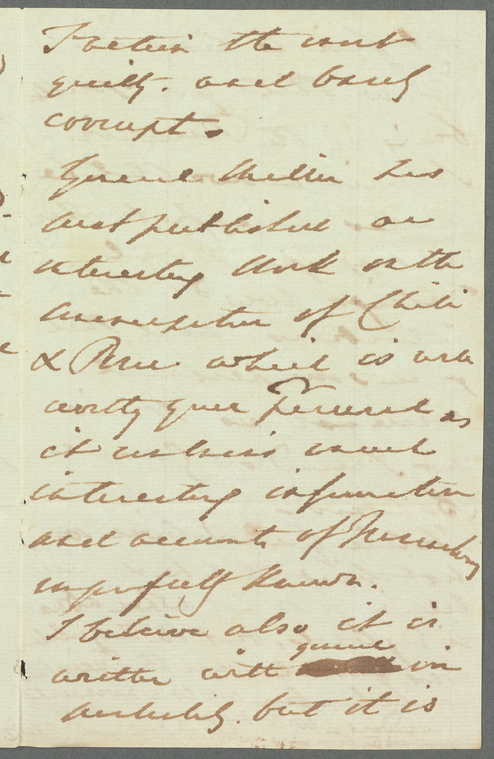 the most
guilty. and basely
corrupt.
General Miller has
just published an
interesting Work on the
of Chili
& Peru which is well
worthy your Perusal as
it contains much
interesting information
and accounts of
imperfectly known.
I believe also it is
written with great in
but it is